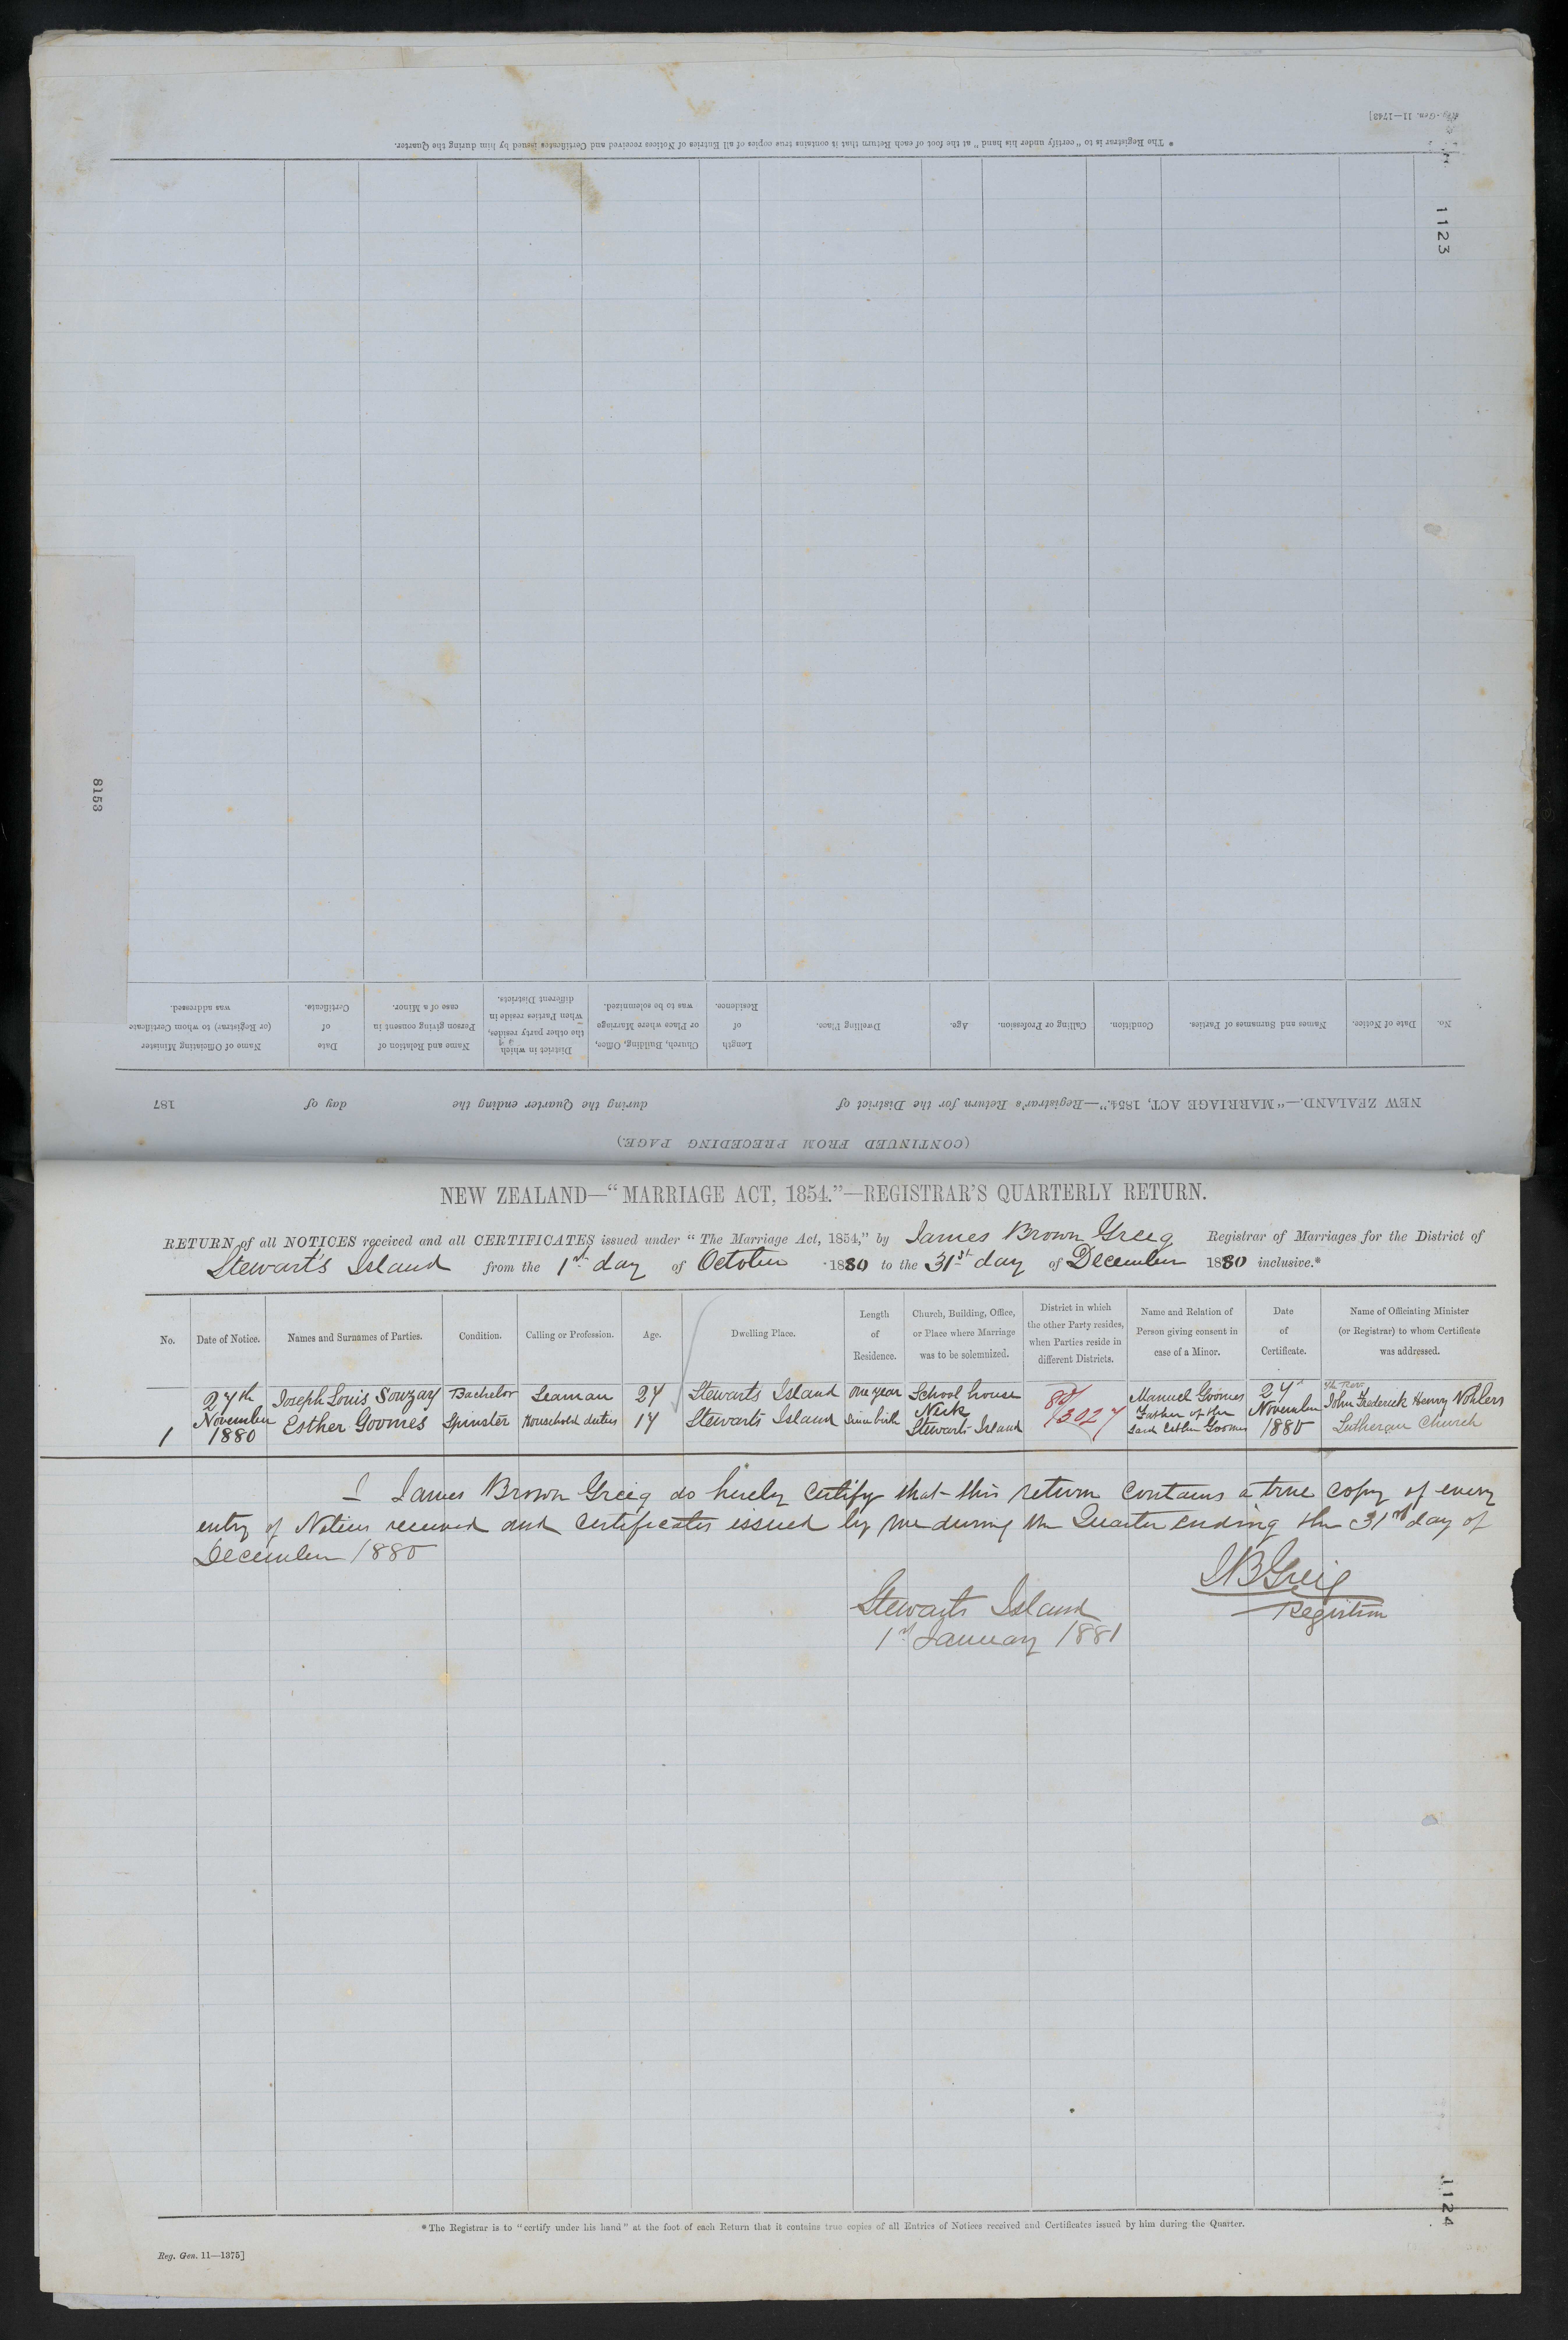 Reg. Gen. 11—1743]
* The Registrar is to "certify under his hand" at the foot of each Return that it contains true copies of all Entries of Notices received and Certificates issued by him during the Quarter.
1123
8153
(CONTINUED FROM PRECEDING PAGE.)
NEW ZEALAND.—"MARRIAGE ACT, 1854."—Registrar's Return for the District of during the Quarter ending the day of 187
No. Date of Notice. Names and Surnames of Parties. Condition. Calling or Profession. Age. Dwelling Place. Length of Residence. Church, Building, Office, or Place where Marriage was to be solemnized. District in which the other party resides, when Parties reside in different Districts. Name and Relation of Person giving consent in case of a Minor. Date of Certificate. Name of Officiating Minister (or Registrar) to whom Certificate was addressed.
NEW ZEALAND—"MARRIAGE ACT, 1854."—REGISTRAR'S QUARTERLY RETURN.
RETURN of all NOTICES received and all CERTIFICATES issued under "The Marriage Act, 1854," by James Brown Greig Registrar of Marriages for the District of
Stewart's Island from the 1st day of October 1880 to the 31st day of December 1880 inclusive.*
No. Date of Notice. Names and Surnames of Parties. Condition. Calling or Profession. Age. Dwelling Place. Length of Residence. Church, Building, Office, or Place where Marriage was to be solemnized. District in which the other Party resides, when Parties reside in different Districts. Name and Relation of Person giving consent in case of a Minor. Date of Certificate. Name of Officiating Minister (or Registrar) to whom Certificate was addressed.
27th Joseph Louis Souzay Bachelor Seaman 27 Stewarts Island one year School house 80/3027 Manuel Goomes 27th The Rev.
November Esther Goomes Spinster Household duties 17 Stewarts Island Since birth Neck Father of the November John Frederick Henry Wohlers
1 1880 Stewarts Island said Esther Goomes 1880 Lutheran Church
I James Brown Greig do hereby certify that this return contains a true copy of every
entry of Notices received and certificates issued by me during the Quarter ending the 31st day of
December 1880
JBGreig
Registrar
Stewarts Island
1st January 1881
* The Registrar is to "certify under his hand" at the foot of each Return that it contains true copies of all Entries of Notices received and Certificates issued by him during the Quarter.
Reg. Gen. 11—1375]
1124